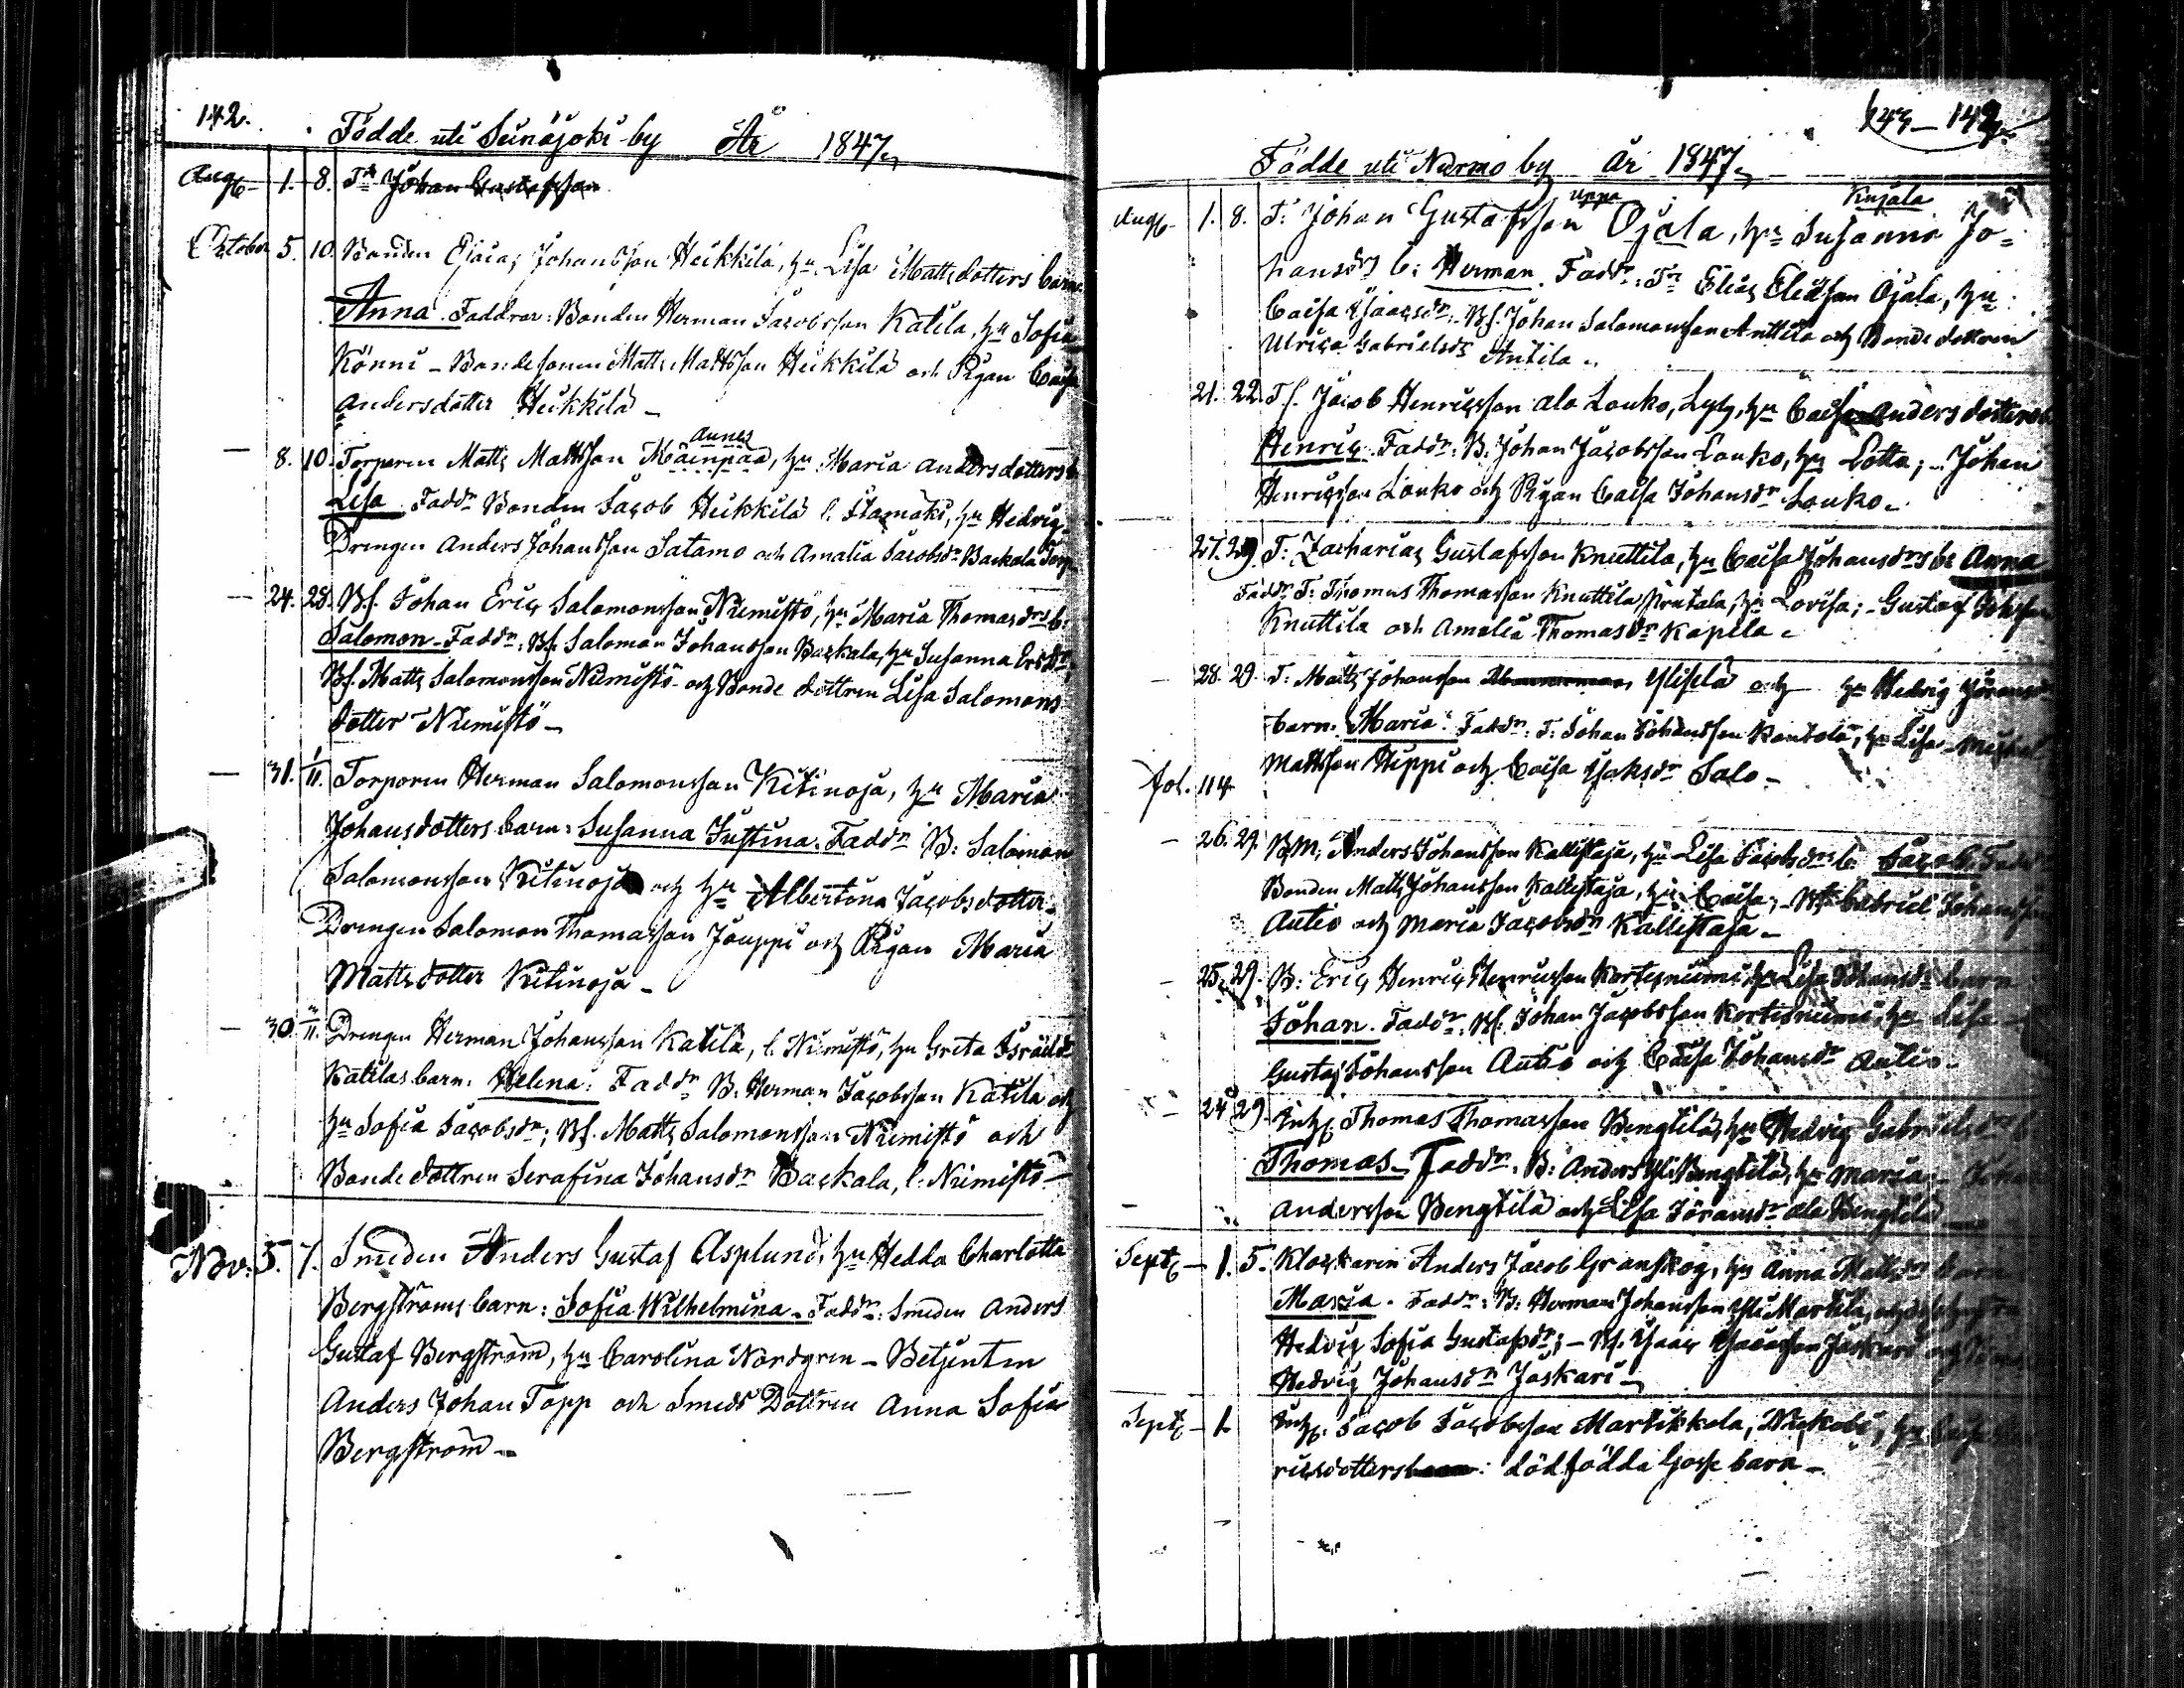 142.
Födde uti Seinäjoki by År 1847,
Aug. 1. 8. Tr Johan Gustafsson
October 5. 10. Bonden Johansson Heikkilä, hu Lisa Mattsdotters barn
Anna. Faddrar: Bonden Herman Jacobsson Katila, hu Sofia
Könni - Bondesonen Matts Mattsson Heikkilä och Pigan Caisa
Andersdotter Heikkilä -
annex
— 8. 10. Torparen Matts Mattsson Mäenpää, hu Maria Andersdotters b.
Lisa Faddr Bonden Jacob Heikkilä l. Ilamäki, hu Hedvig
Drengen Anders Johansson Satamo och Amalia Jacobsdr Backala Torp
— 24. 28. Bs. Johan Eric Salomonsson Niemistö, hu Maria Thomasdrs b.
Salomon - Faddr: Bs. Salomon Johansson Backala, hu Susanna Ersdr;
Bs. Matts Salomonsson Niemistö och Bonde dottren Lisa Salomons
dotter Niemistö -
— 31. 1/11. Torparen Herman Salomonsson Kitinoja, hu Maria
Johansdotters barn: Susanna Justina. Faddr B: Salomon
Salomonsson Kitinoja och hu Albertina Jacobsdotter -
Drengen Salomon Thomasson Jouppi och Pigan Maria
Mattsdotter Kitinoja -
— 30. /11. Drengen Herman Johansson Katila, l. Niemistö, hu Greta Israelsd
Katilas barn: Helena: Faddr B. Herman Jacobsson Katila och
hu Sofia Jacobsdr; Bs. Matts Salomonsson Niemistö och
Bonde dottren Serafina Johansdr Backala, l. Niemistö -
Nov. 5. 7. Smeden Anders Gustaf Asplund, hu Hedda Charlotta
Bergströms barn: Sofia Wilhelmina - Faddr: Smeden Anders
Gustaf Bergström, hu Carolina Nordgren - Betjenten
Anders Johan Topp och Smeds Dottren Anna Sofia
Bergström -
143 - 142
Födde uti Nurmo by år 1847,
uppa Kujala
Aug. 1. 8. T: Johan Gustafsson Ojala, hu Susanna Jo=
hansdrs b: Herman. Faddr: Tr Elias Eliasson Ojala, hu
Caisa Isaacsdr - Bs. Johan Salomonsson Anttila och Bonde dottren
Ulrica Gabrielsdr Antila -
21. 22. Ts. Jacob Henricsson ala Louko, hu Caisa Andersdotters b
Henric. Faddr: B. Johan Jacobsson Louko, hu Lotta; - Johan
Henricsson Louko och Pigan Caisa Johansdr Louko -
27. 29. T: Zacharias Gustafsson Knuttila, hu Caisa Johansdrs b: Anna
Faddr T: Thomas Thomasson Knuttila hu Lovisa; - Gustaf
Knuttila och Amalia Thomasdr Kapila -
28. 29. T: Matts Johansson Ylisela och hu Hedvig
barn: Maria: Faddr: T: Johan Johansson hu Lisa -
Mattsson Hippi och Caisa Isaksdr Salo -
fol. 114
— 26. 29. BM. Anders Johansson Kallistaja, hu Lisa Jacobsdrs b. Jacob. Fadd
Bonden Matts Johansson Kallistaja, hu Caisa; - Gabriel Johansson
Autio och Maria Jacobsdr Kallistaja -
— 25. 29. B: Eric Henric Henricsson Kortesniemi, hu Lisa Johansdr barn
Johan. Faddr: Bs. Johan Jacobsson Kortesniemi, hu Lisa -
Gustaf Johansson Autio och Caisa Johansdr Autio -
— 24. 29. Inh. Thomas Thomasson Bengtilä, hu Hedvig Gabrielsdrs b
Thomas - Faddr: B: Anders Yli Bengtilä, hu Maria - Johan
Andersson Bengtilä och Lisa Göransdr ala Bengtilä
Sept. — 1. 5. Klockaren Anders Jacob Granskog, hu Anna Mattsdr barn
Maria. Faddr: B: Herman Johansson Yli Martila,
Hedvig Sofia Gustafsdr; - Bs. Isaac Isaacsson Jaskari
Hedvig Johansdr Jaskari -
Sept. — 1. Inh. Jacob Jacobsson Martikkala, hu
ricsdotters barn: dödfödda Gosse barn -